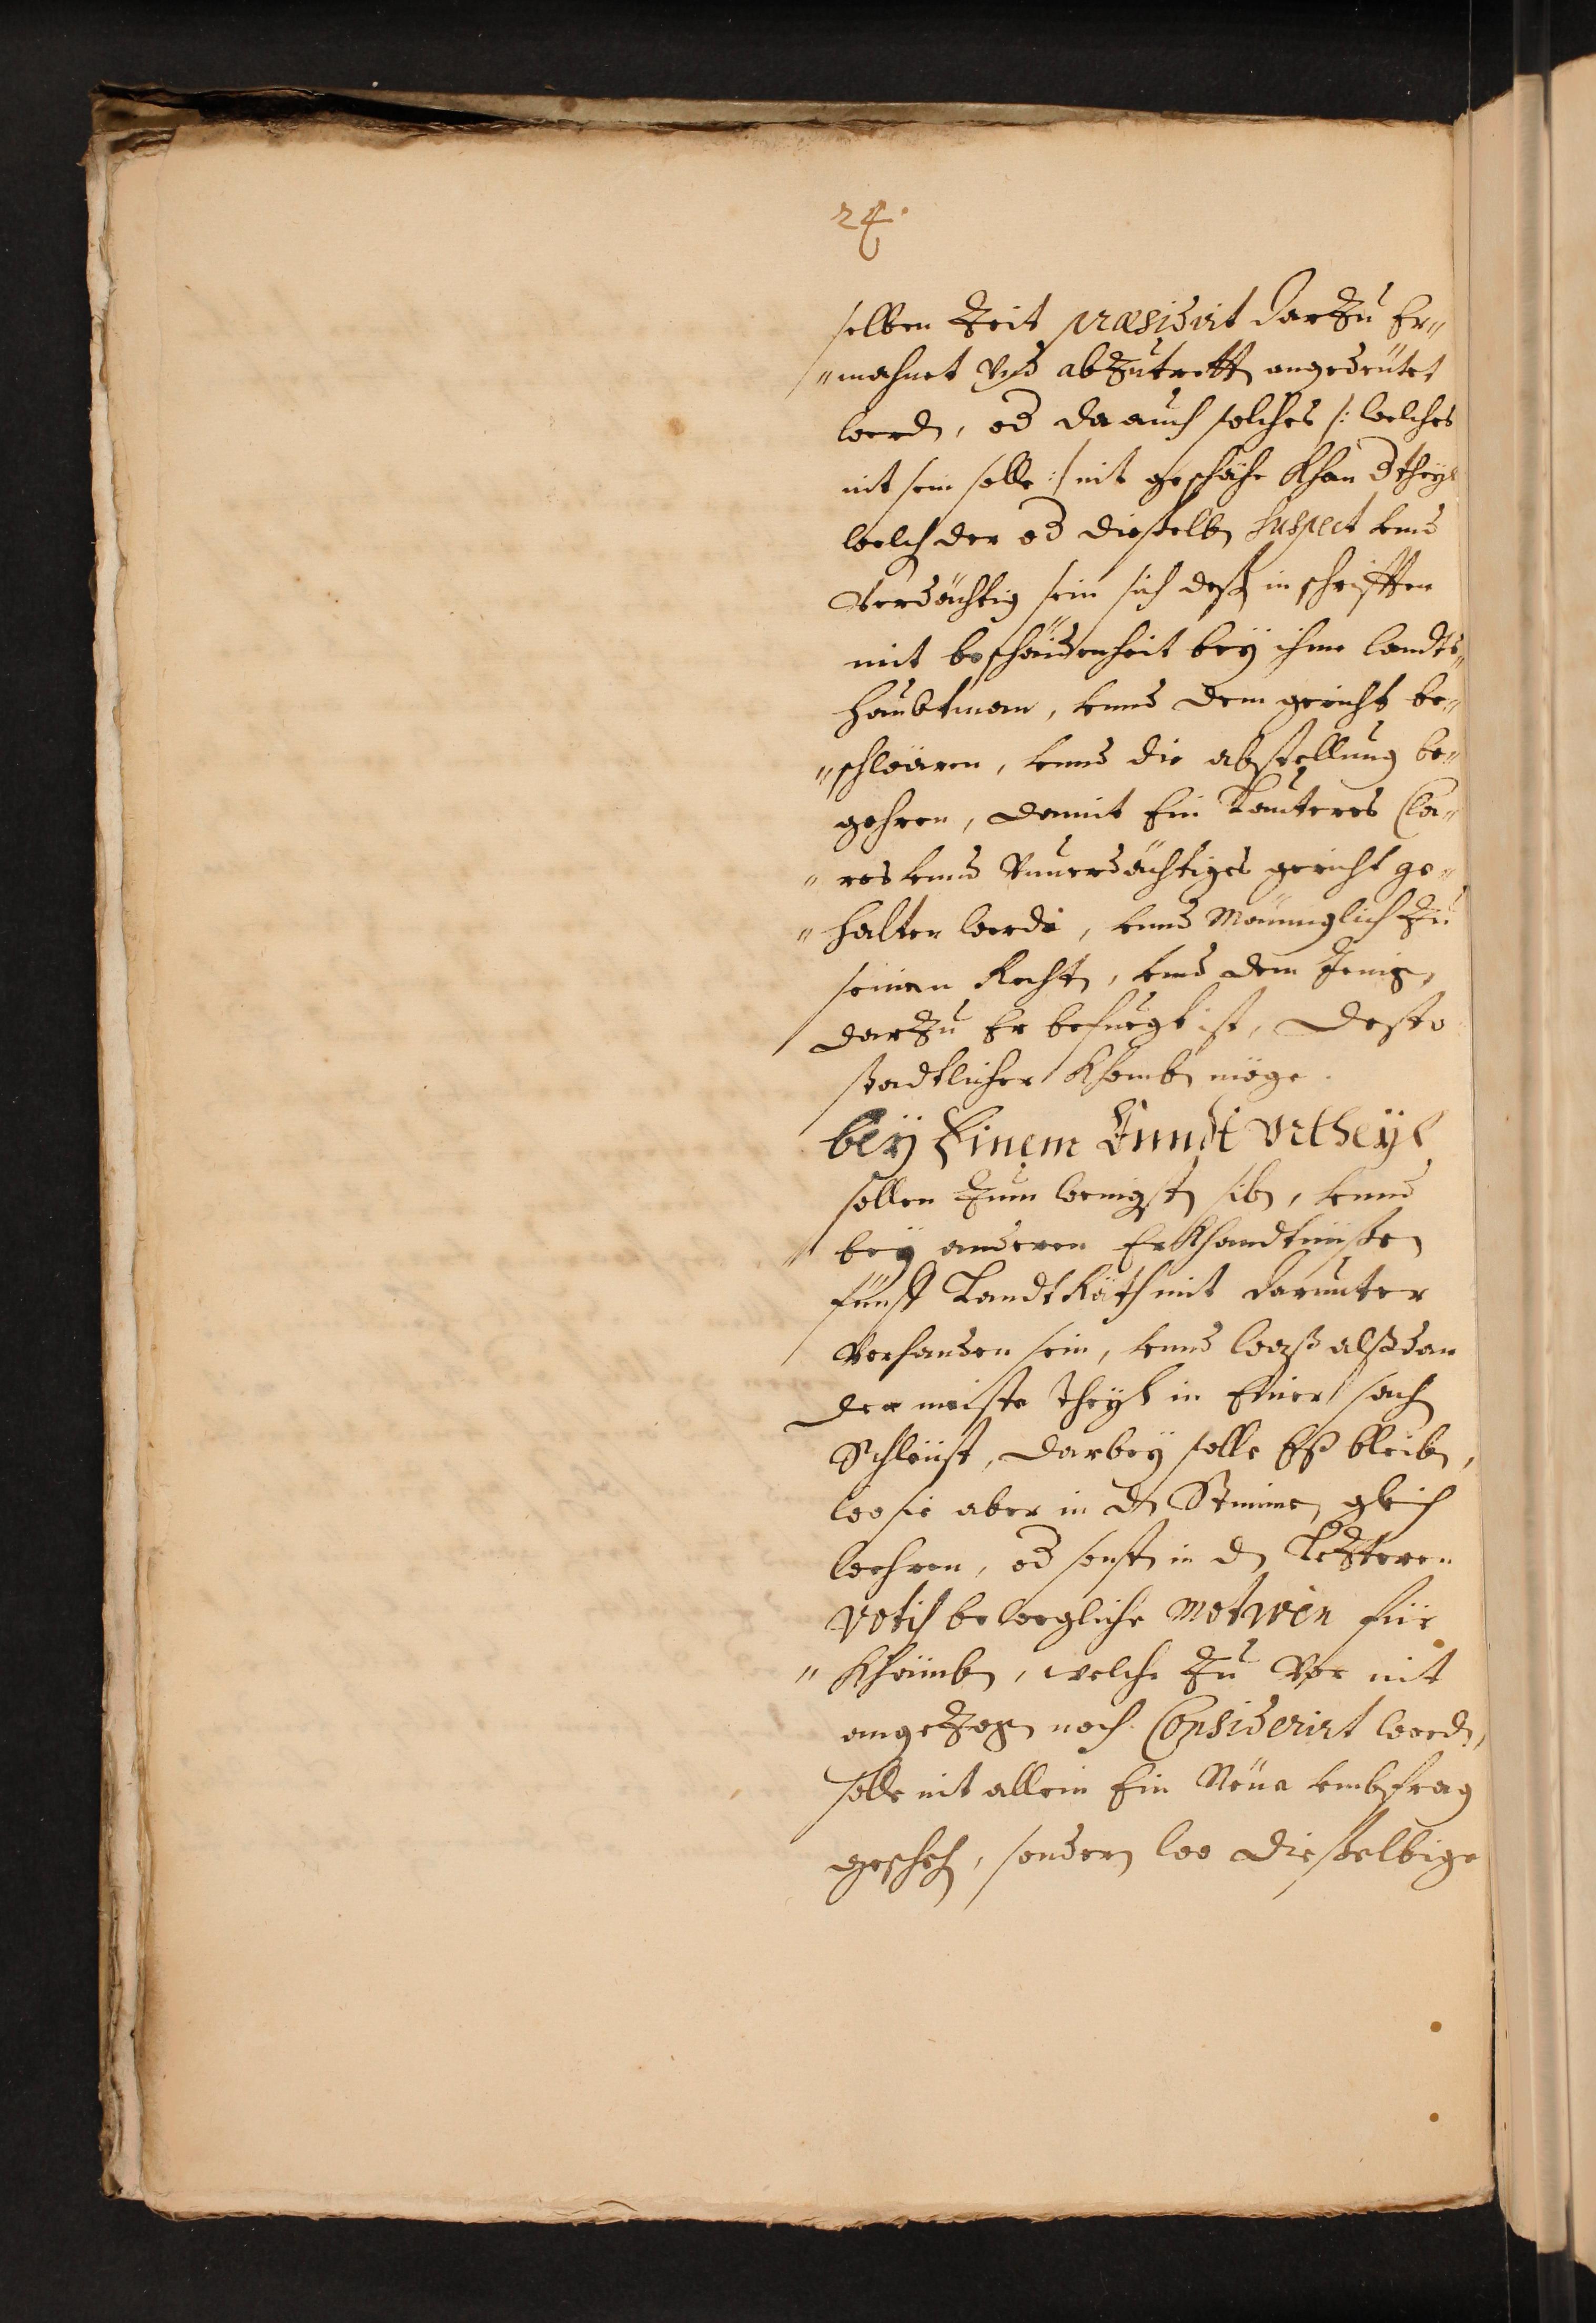 24.
selben Zeit præsidirt darzu Er„
„mahnet vnd abzutrettn angedeütet
werdn, od da auch solches /: welches
nit sein solle :/ nit geschähe khan d theyl
welch der od dieselbn suspect vnd
verdächtig sein sich deß in schrifften
mit beschaidenheit bey ihme landts„
haubtman, vnnd dem gericht be„
„schwären, vnnd die abstellung be„
gehren, damit Ein Lauteres Cla„
„res vnnd vnuerdächtiges gericht ge„
„halten werde, vnnd Männiglich zu
seinen Rechtn, vnd dem Jenign,
darzu Er befuegt ist, desto
stadtlicher khombn möge.
bey Einem Enndt vrtheyl
sollen zum wenigstn sibn, vnnd
bey anderen Erkhandtnußen
fünff LandtRäth mit darunter
verhanden sein, vnnd waß alßdan
der meiste theyl in Einer sach
Schleüst, darbey solle Eß bleibn,
wo sie aber in dn Stimmen gleich
wehren, od sonstn in dn Letzteren
votis bewegliche motiven für
„khämbn, welche zu vor nit
angezogn noch Considerirt wordn,
solle nit allein Ein Neue vmbfrag
geschehn, sondern wo dieselbige